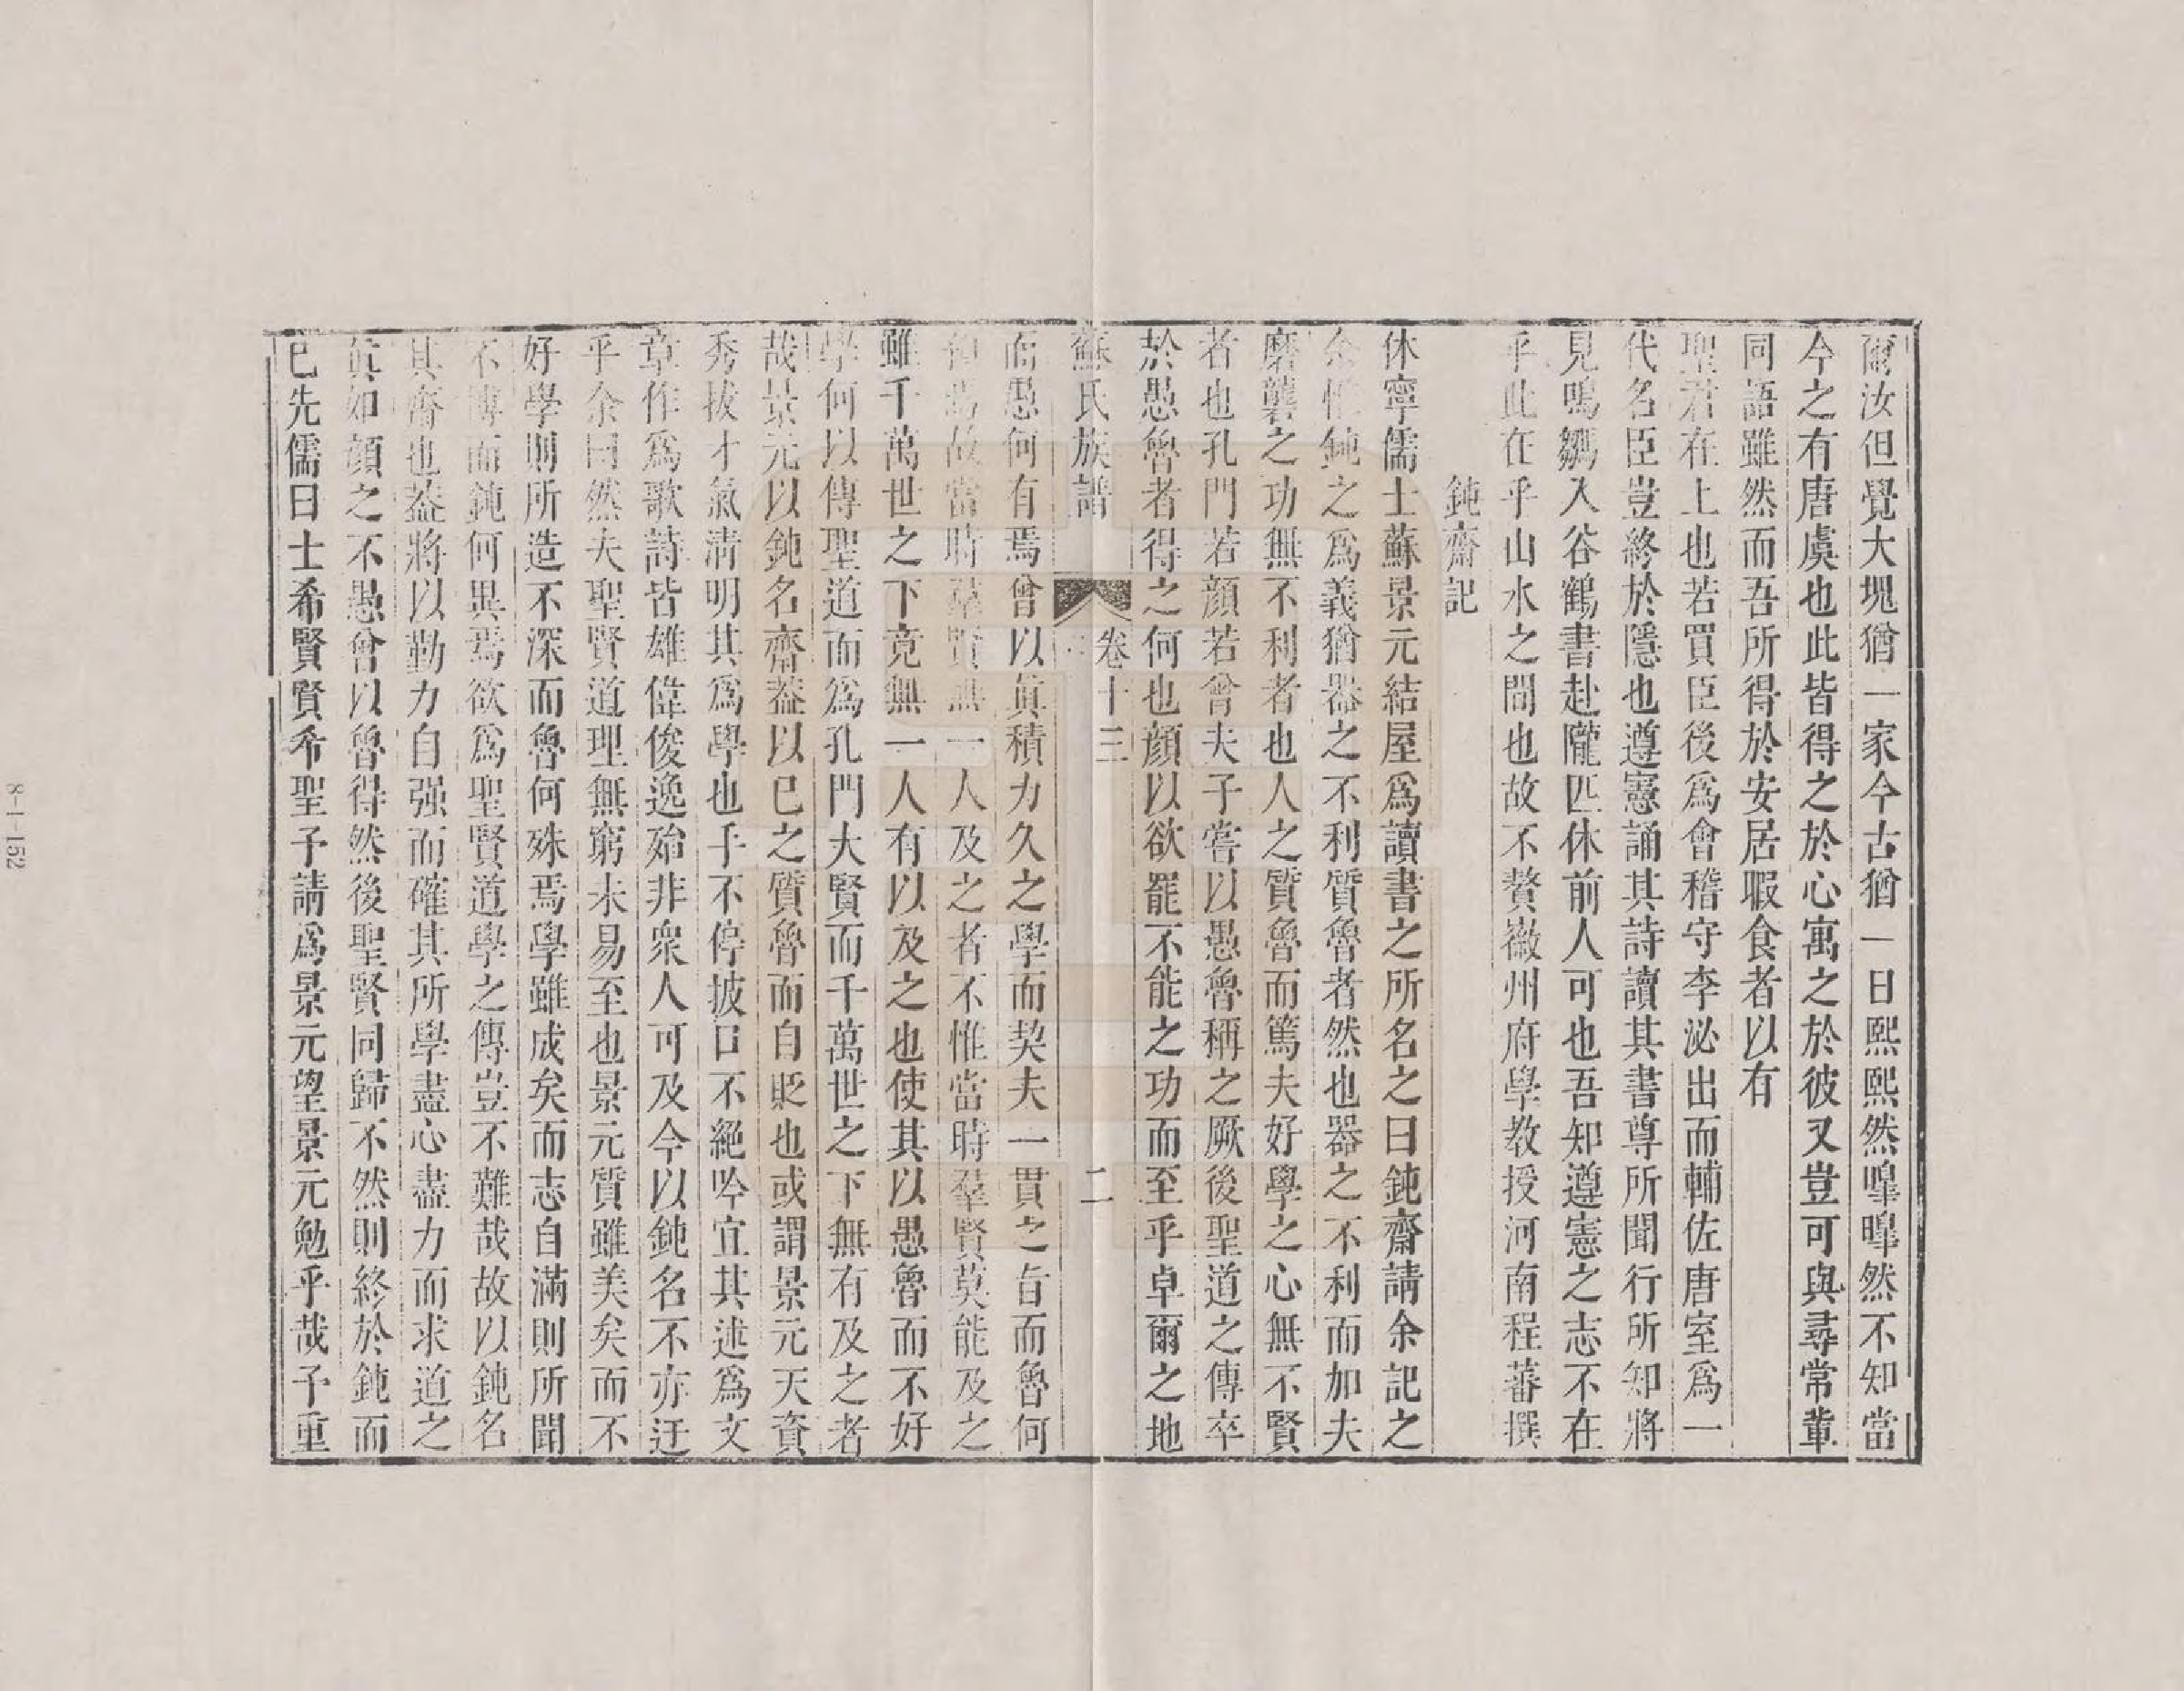 爾汝但覺大塊猶一家今古猶一日熙熙然皥皥然不知當
今之有唐虞也此皆得之於心寓之於彼又豈可與尋常輩
同語雖然而吾所得於安居暇食者以有
聖君在上也若買臣後爲會稽守李泌出而輔佐唐室爲一
代名臣豈終於隱也遵憲誦其詩讀其書尊所聞行所知將
見鳴騶入谷鶴書赴隴匹休前人可也吾知遵憲之志不在
乎此在乎山水之間也故不贅徽州府學教授河南程蕃撰
鈍齋記
休寧儒士蘇景元結屋爲讀書之所名之曰鈍齋請余記之
余惟鈍之爲義猶器之不利質魯者然也器之不利而加夫
磨礲之功無不利者也人之質魯而篤夫好學之心無不賢
者也孔門若顏若曾夫子嘗以愚魯稱之厥後聖道之傳卒
於愚魯者得之何也顏以欲罷不能之功而至乎卓爾之地
蘇氏族譜
卷十三
二
而愚何有焉曾以眞積力久之學而契夫一貫之旨而魯何
有焉故當時羣賢無一人及之者不惟當時羣賢莫能及之
雖千萬世之下竟無一人有以及之也使其以愚魯而不好
學何以傳聖道而爲孔門大賢而千萬世之下無有及之者
哉景元以鈍名齋葢以已之質魯而自貶也或謂景元天資
秀拔才氣淸明其爲學也手不停披口不絕吟宜其述爲文
章作爲歌詩皆雄偉俊逸殆非衆人可及今以鈍名不亦迂
乎余曰然夫聖賢道理無窮未易至也景元質雖美矣而不
好學則所造不深而魯何殊焉學雖成矣而志自滿則所聞
不博而鈍何異焉欲爲聖賢道學之傳豈不難哉故以鈍名
其齋也葢將以勤力自强而確其所學盡心盡力而求道之
眞如顏之不愚曾以魯得然後聖賢同歸不然則終於鈍而
已先儒曰士希賢賢希聖予請爲景元望景元勉乎哉予重
8-1-152